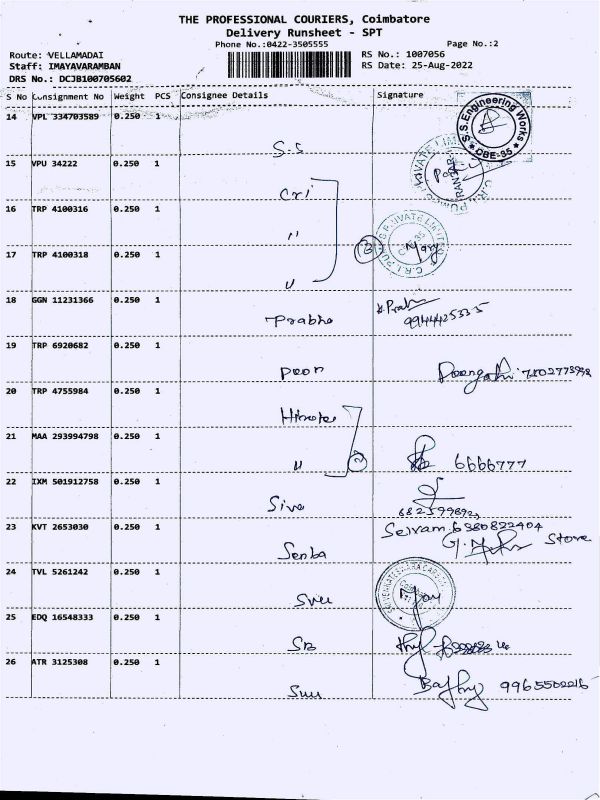 THE PROFESSIONAL COURIERS, Coimbatore
Delivery Runsheet - SPT
Phone No.:0422-3505555
Page No.:2
Route: VELLAMADAI
RS No.: 1007056
Staff: IMAYAVARAMBAN
RS Date: 25-Aug-2022
DRS No.: DCJB100705602
S No Consignment No Weight PCS Consignee Details Signature
14 VPL 334703589 0.250 1
S.S
S.S.Engineering Works
CBE-35
15 VPU 34222 0.250 1
Cri
16 TRP 4100316 0.250 1
"
17 TRP 4100318 0.250 1
"
3
Mary
18 GGN 11231366 0.250 1
Prabhe
9944425335
19 TRP 6920682 0.250 1
poon
Poongodi
20 TRP 4755984 0.250 1
21 MAA 293994798 0.250 1
"
2
6666777
22 IXM 501912758 0.250 1
Siva
23 KVT 2653030 0.250 1
Selvam 6380822404
Senba
Store
24 TVL 5261242 0.250 1
25 EDQ 16548333 0.250 1
26 ATR 3125308 0.250 1
9965502216